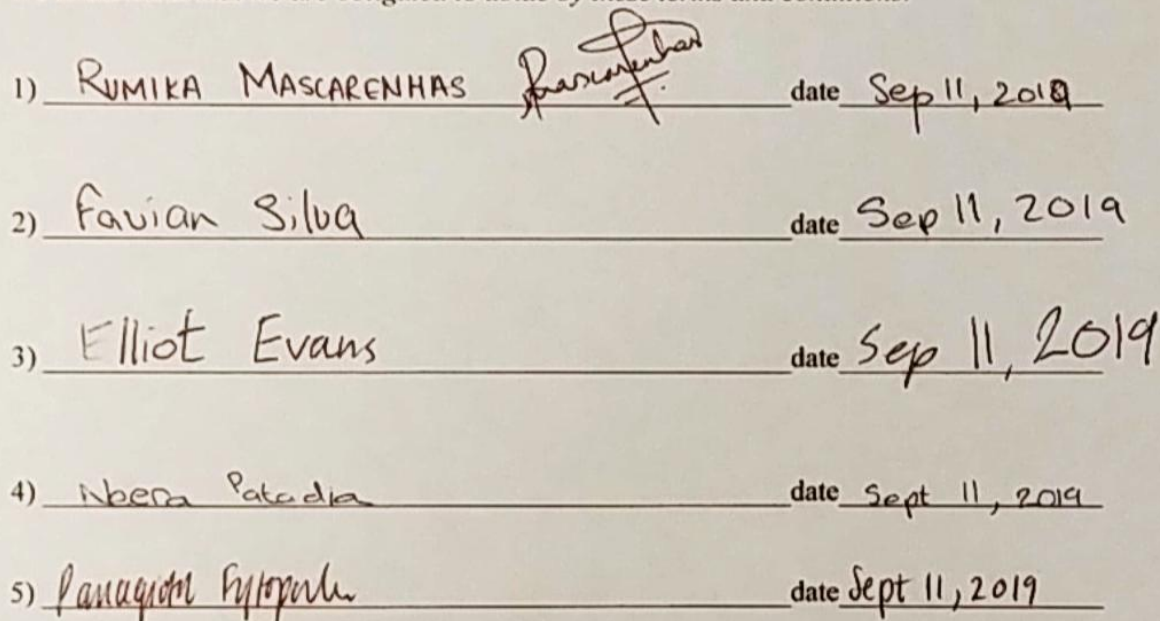 1) RUMIKA MASCARENHAS date Sep 11, 2019
2) Favian Silva date Sep 11, 2019
3) Elliot Evans date Sep 11, 2019
4) Patadia date Sept 11, 2019
5) date Sept 11, 2019